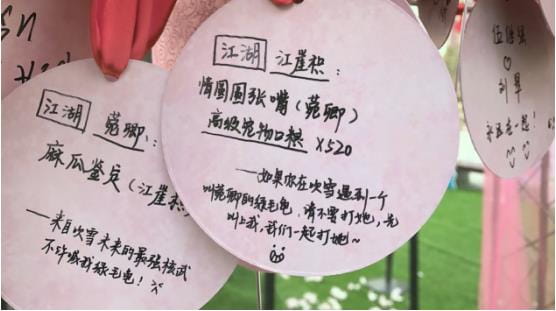 江湖 江崖积：
情圆圆张嘴（菀卿）
高级宠物口粮 X520
——如果你在吹雪遇到一个
叫菀卿的绿毛龟，请不要打她，先
叫上我，我们一起打她~
江湖 菀卿：
麻瓜鉴定（江崖积）
——来自吹雪未来的最强核武
不许喊我绿毛龟！
伍
刘
永远在一起！